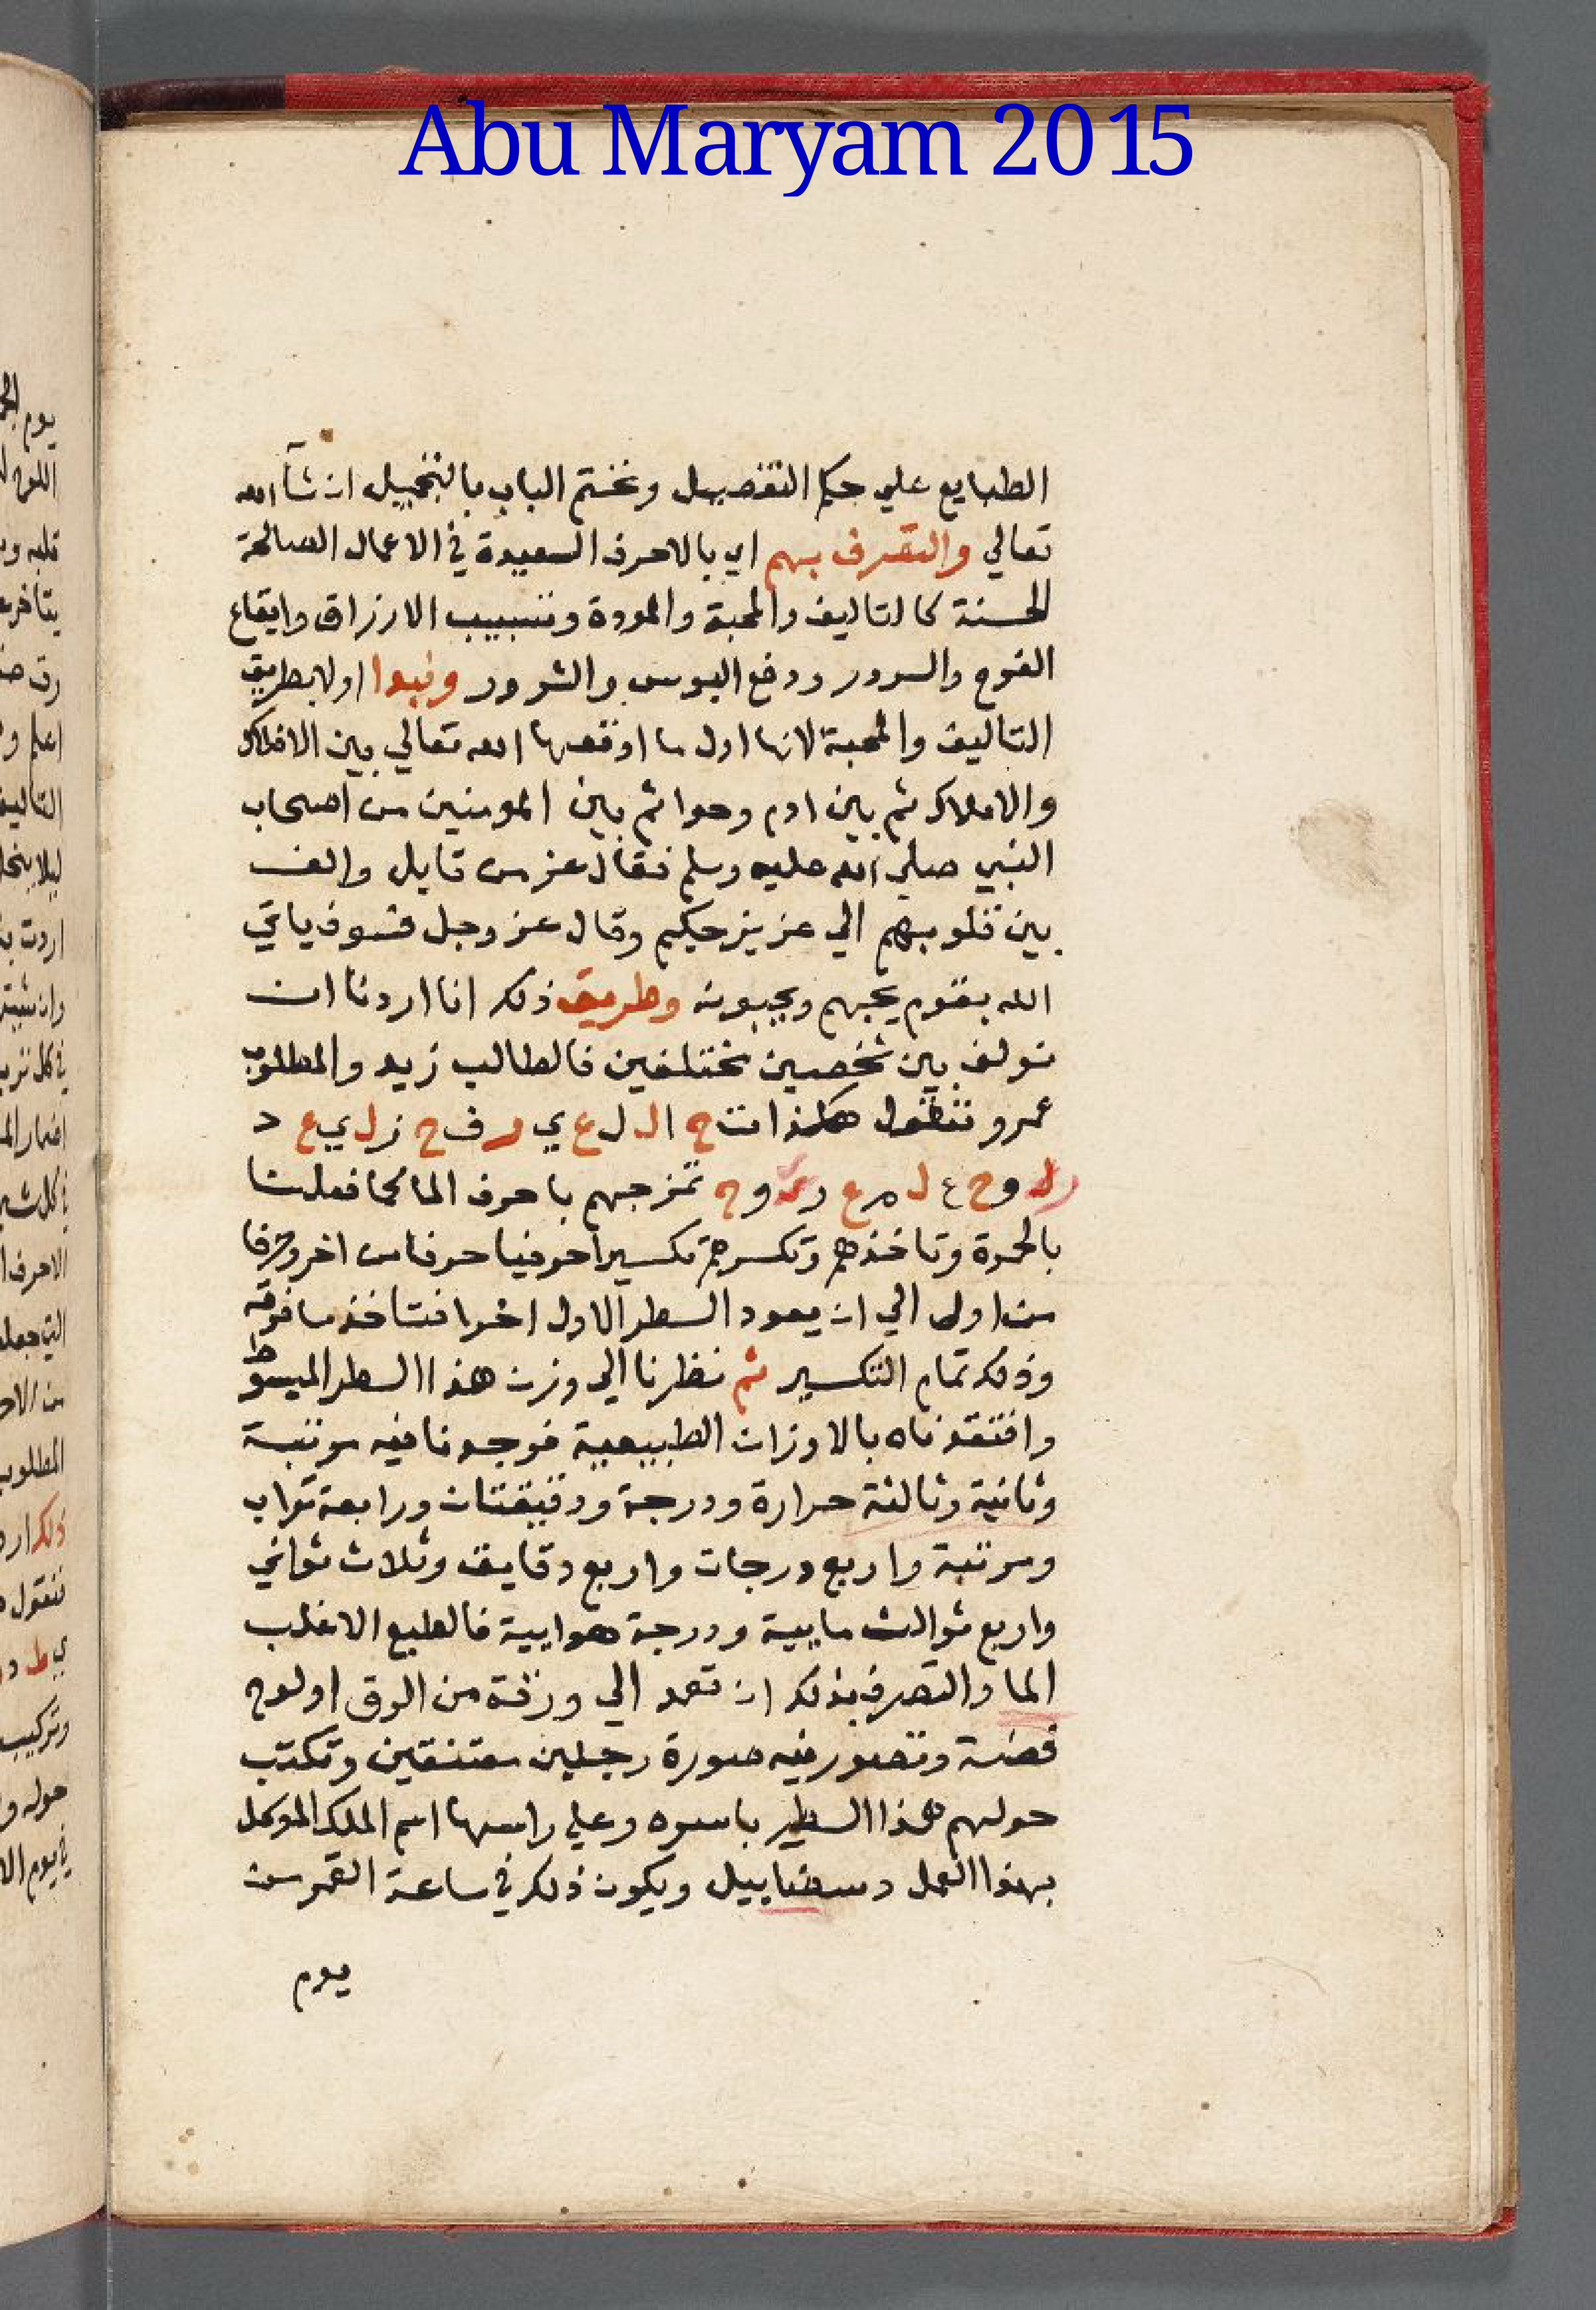 Abu Maryam 2015
الطبايع علي حكم التفضيل ونختم الباب بالتخييل ان شآ الله
تعالي والتصرف بهم اي بالاحرف السعيدة في الاعمال الصالحة
الحسنة كالتاليف والمحبة والمودة وتسبيب الارزاق وايقاع
الفرح والسرور ودفع البوس والشرور ونبدا اولا بطريق
التاليف والمحبة لانها اول ما اوقعها الله تعالي بين الافلاك
والاملاك ثم بين ادم وحوا ثم بين المومنين من اصحاب
النبي صلي الله عليه وسلم فقال عز من قايل والف
بين قلوبهم الي عزيز حكيم وقال عز وجل فسوف ياتي
الله بقوم يحبهم ويحبونه وطريق ذلك اذا اردنا ان
نولف بين شخصين مختلفين فالطالب زيد والمطلوب
عمرو فنقول هكذا ح ال ل ع ي ر ف ح ز ل ي ع د
ل و ح ع ل م ع ر و ح تمزجهم باحرف الما كما فعلنا
بالحمرة وتاخذهم وتكسرهم تكسيرا حرفيا حرفا من اخر وحرفا
من اول الي ان يعود السطر الاول اخرا فتاخذ ما فوقه
وذلك تمام التكسير ثم نظرنا الي وزن هذا السطر المبسوط
وافتقدناه بالاوزان الطبيعية فوجدنا فيه مرتبة
وثانية وثالثة حرارة ودرجة ودقيقتان ورابعة تراب
ومرتبة واربع درجات واربع دقايق وثلاث ثواني
واربع ثوالث مايية ودرجة هوايية فالطبع الاغلب
الما والتصرف بذلك ان تعمد الي ورقة من الورق او لوح
فضة وتصور فيه صورة رجلين معتنقين وتكتب
حولهم هذا السطر باسره وعلي راسها اسم الملك الموكل
بهذا العمل ويكون ذلك في ساعة القمر من
يوم